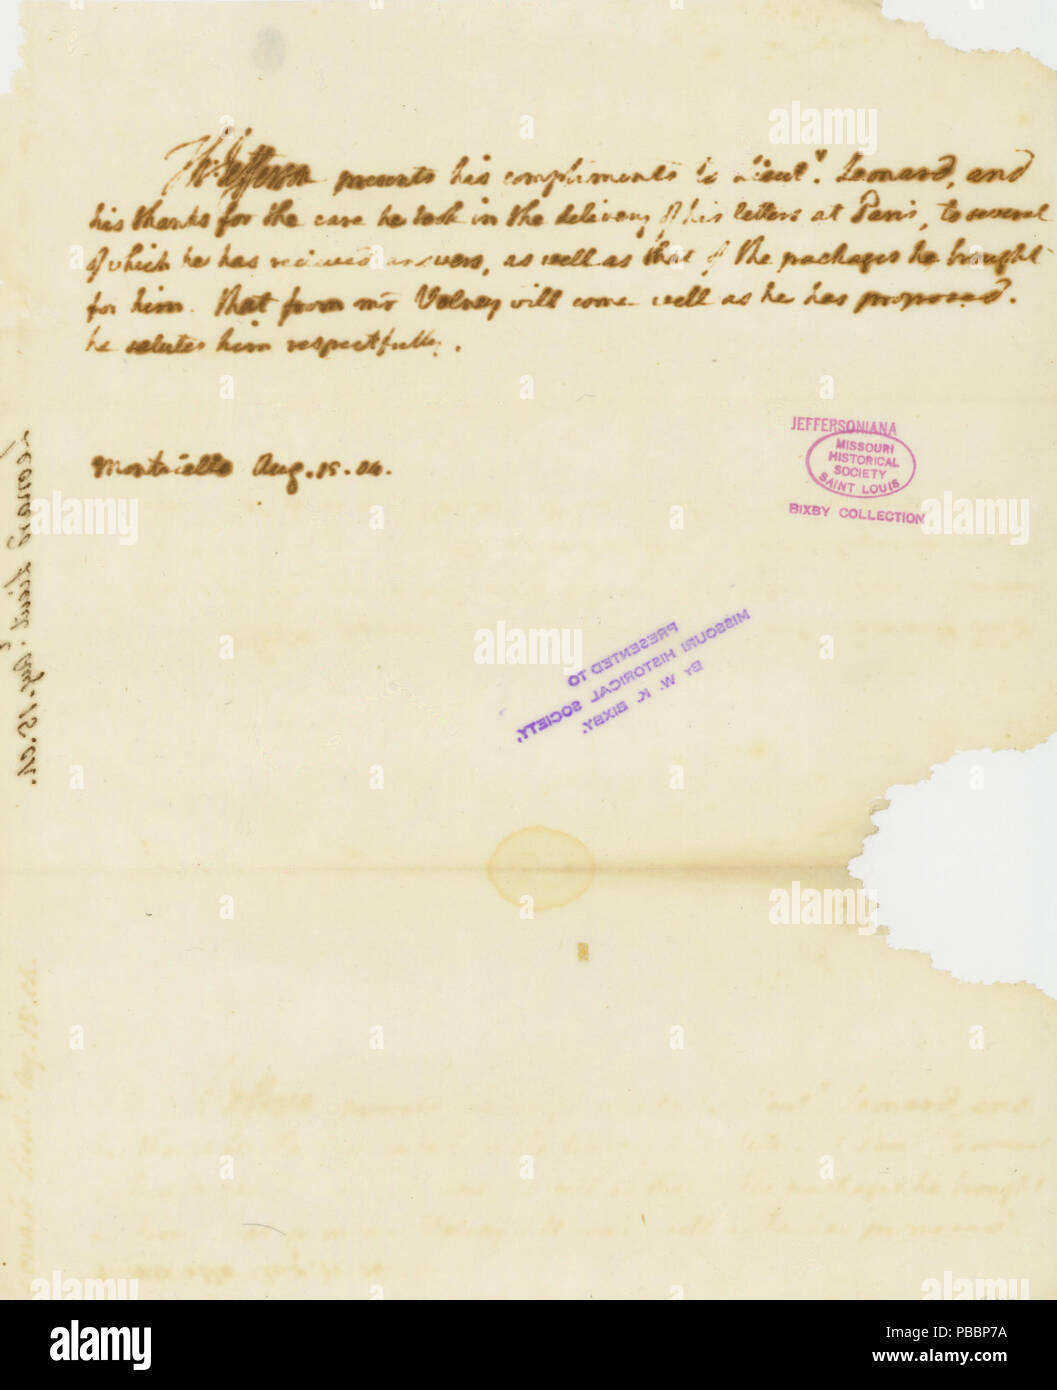 Th: Jefferson presents his compliments to Lieutt. Leonard, and
his thanks for the care he took in the delivery of his letters at Paris, to several
of which he has recieved answers, as well as that of the packages he brought
for him. that from mr Volney will come well as he has proposed.
he salutes him respectfully.
Monticello Aug. 15. 04.
JEFFERSONIANA
MISSOURI
HISTORICAL
SOCIETY
SAINT LOUIS
BIXBY COLLECTION
PRESENTED TO
MISSOURI HISTORICAL SOCIETY,
BY W. K. BIXBY.
Leonard Lieut. Aug. 15. 04.
alamy
alamy
Image ID: PBBP7A
www.alamy.com